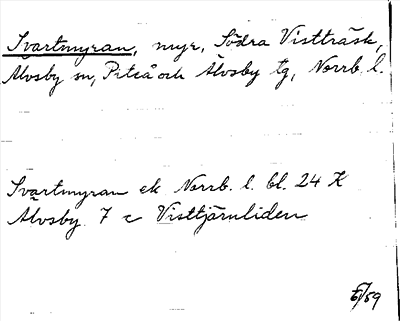 Svartmyran, myr, Södra Vistträsk,
Älvsby sn, Piteå och Älvsby tg, Norrb. l.
Svartmyran ek Norrb. l. bl. 24 K
Älvsby 7 c Visttjärnliden